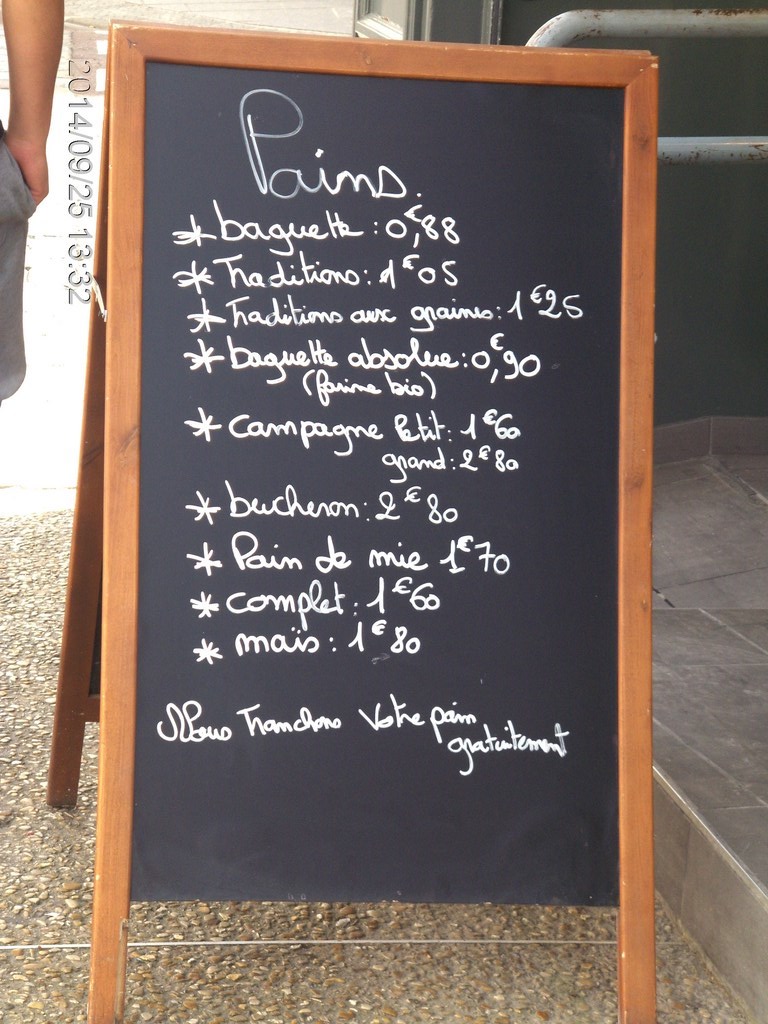 Pains.
* baguette : 0,€88
* Traditions : 1€05
* Traditions aux graines : 1€25
* baguette absolue : 0,€90
(farine bio)
* Campagne Petit : 1€60
grand : 2€80
* bucheron : 2€80
* Pain de mie 1€70
* complet : 1€60
* maïs : 1€80
Nous Tranchons Votre pain
gratuitement
2014/09/25 13:32